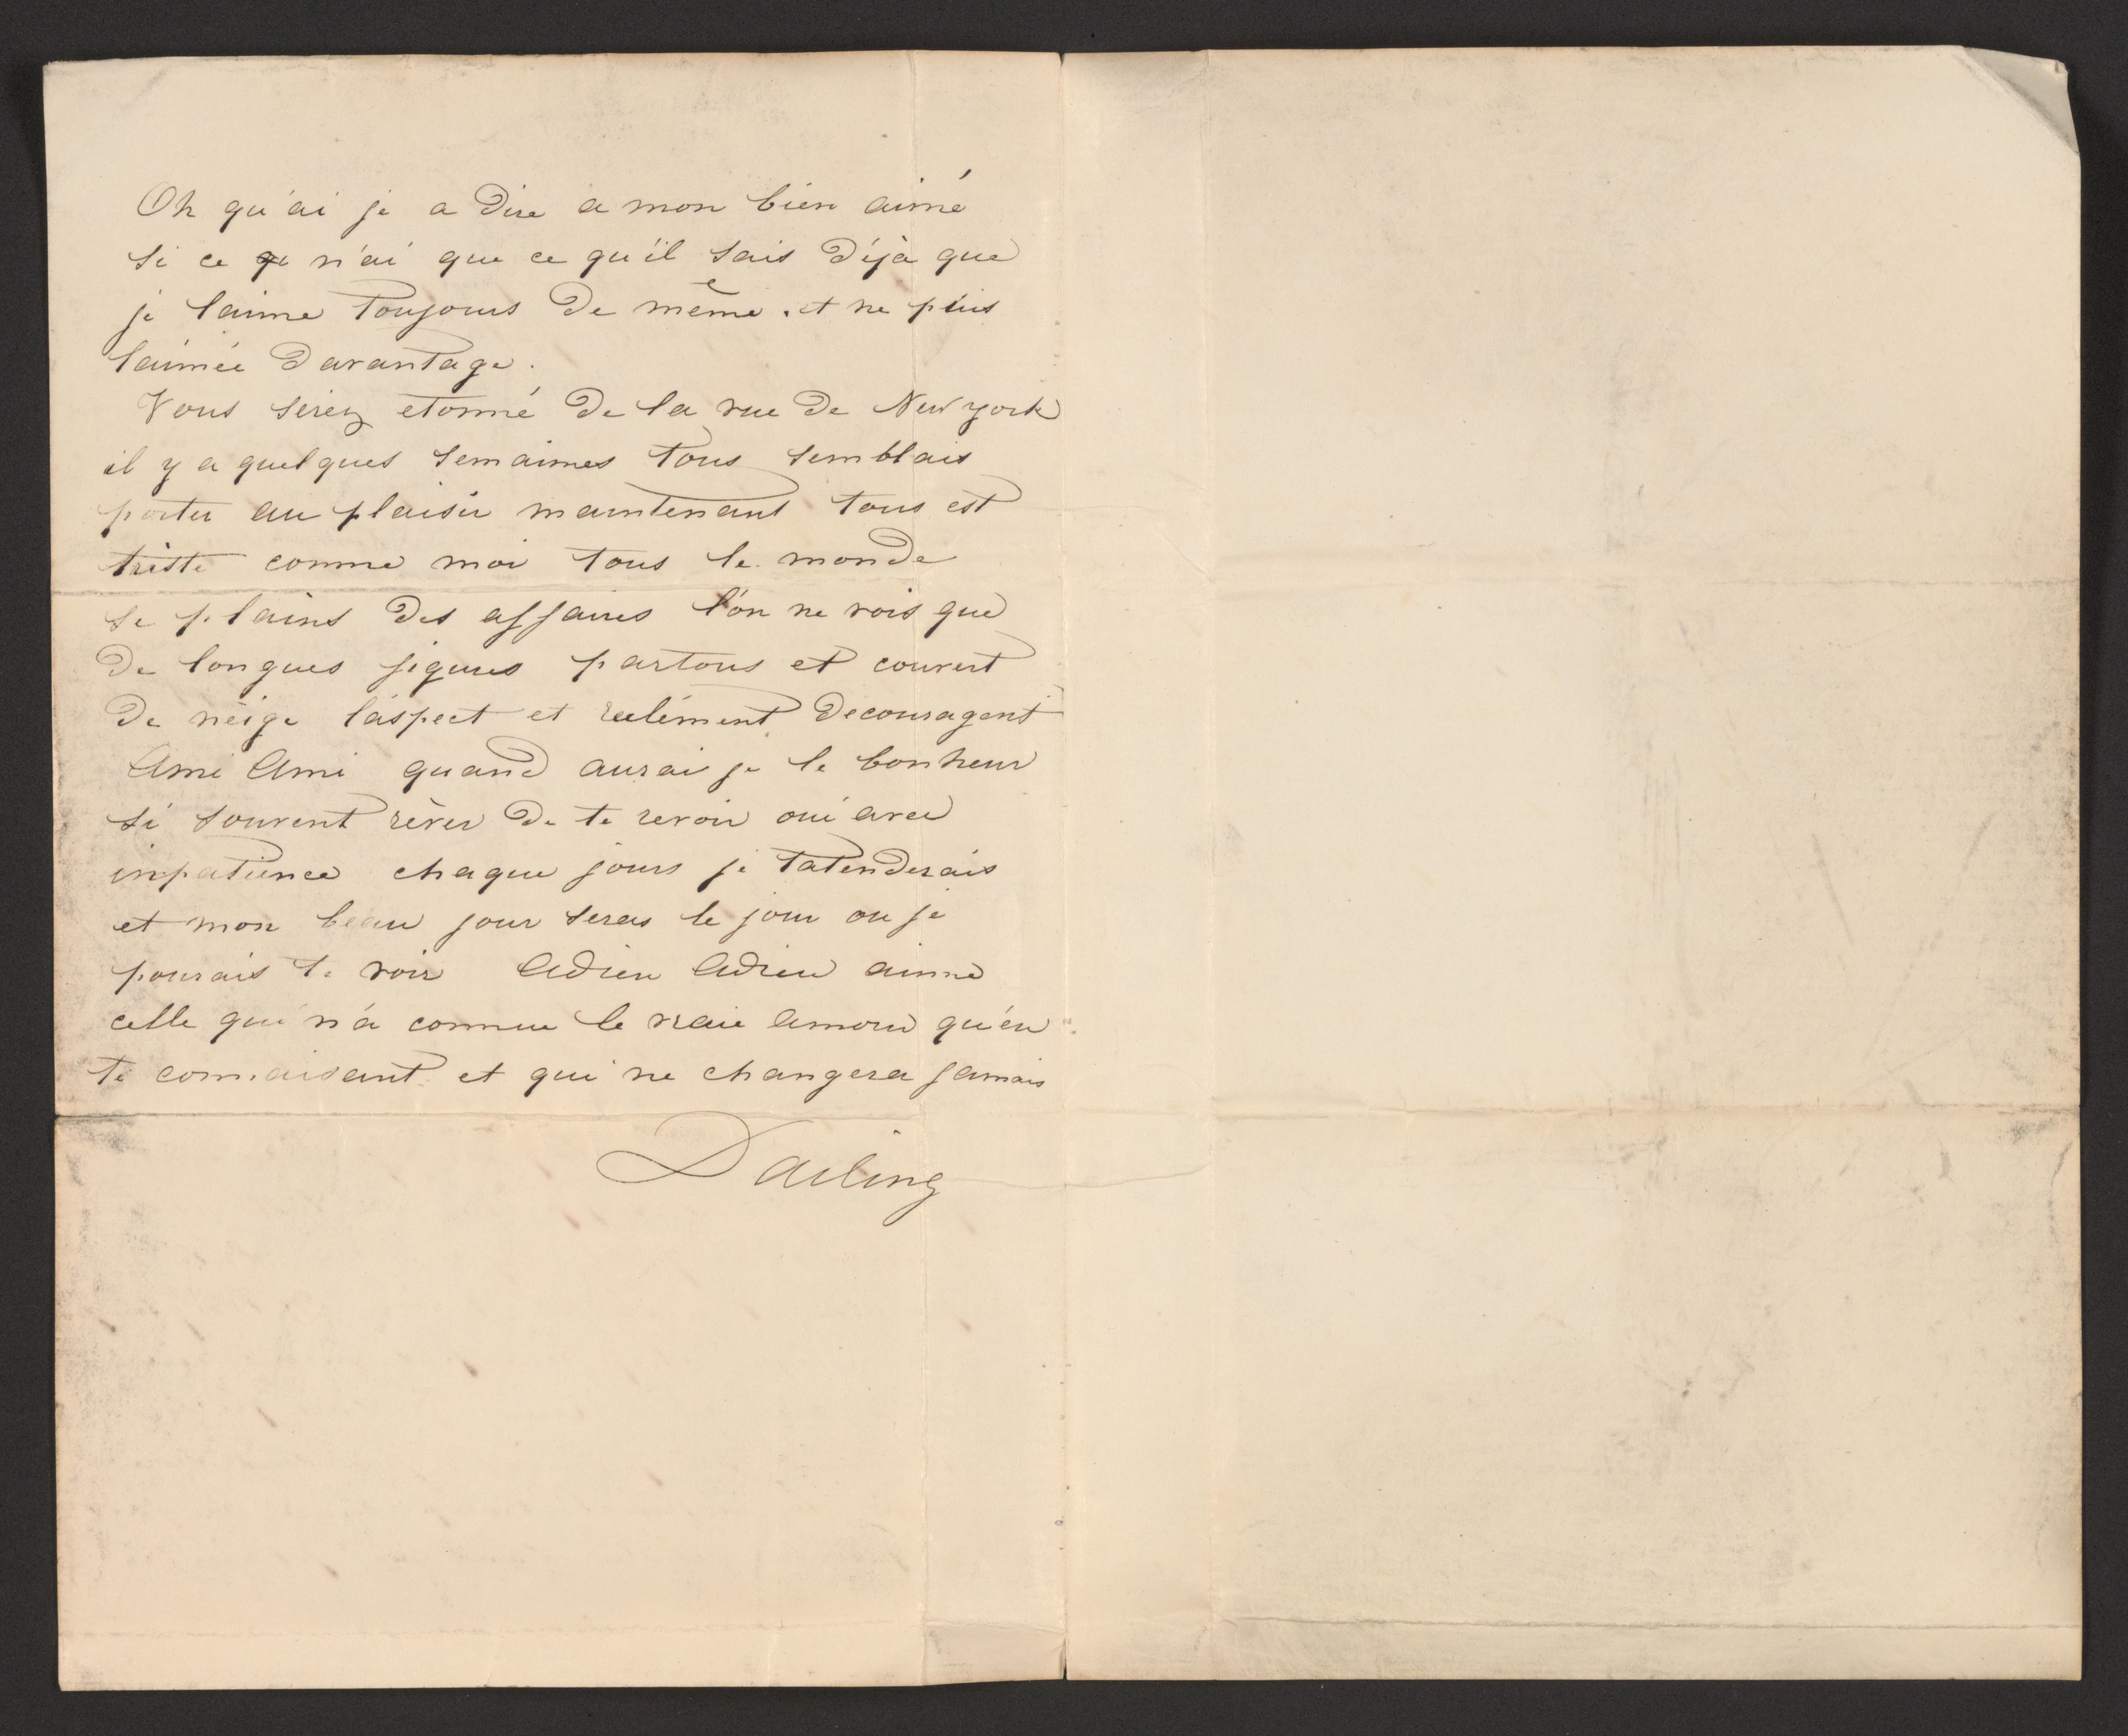 Oh qu'ai je a dire a mon bien aimé
si ce n'ai que ce qu'il sais déjà que
je l'aime toujours de même. et ne puis
l'aimée davantage.
Vous serez etonné de la vue de New york
il y a quelques semaimes tous semblais
porter au plaisir maintenant tous est
triste comme moi tous le monde
se plains des affaires l'on ne vois que
de longues figures partous et couvert
de neige l'aspect et réelément decouragent
Ami Ami quand aurai je le bonheur
si souvent rèver de te revoir oui avec
inpatience chaque jours je t'atenderais
et mon beau jour seras le jour ou je
pourais te voir Adieu Adieu aime
celle qui n'a connue le vraie amour qu'en
te connaisant et qui ne changera jamais
Darling